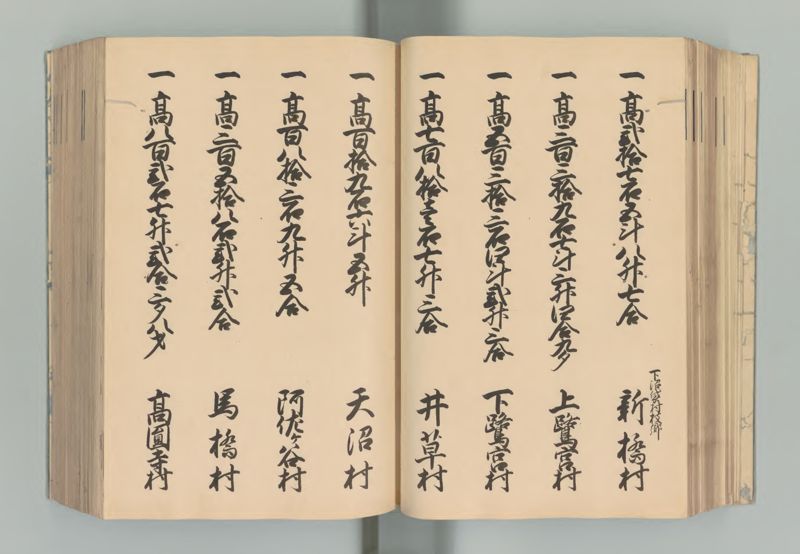 一 高弐拾七石五斗八升七合 下沼袋村枝郷 新橋村
一 高三百三拾九石七斗三升四合九夕 上鷺宮村
一 高五百三拾三石四斗弐升三合 下鷺宮村
一 高七百八拾壱石七升三合 井草村
一 高百拾九石六斗五升 天沼村
一 高百八拾三石九升五合 阿佐ヶ谷村
一 高三百五拾八石弐升弐合 馬橋村
一 高八百弐石七升弐合三夕八才 高圓寺村